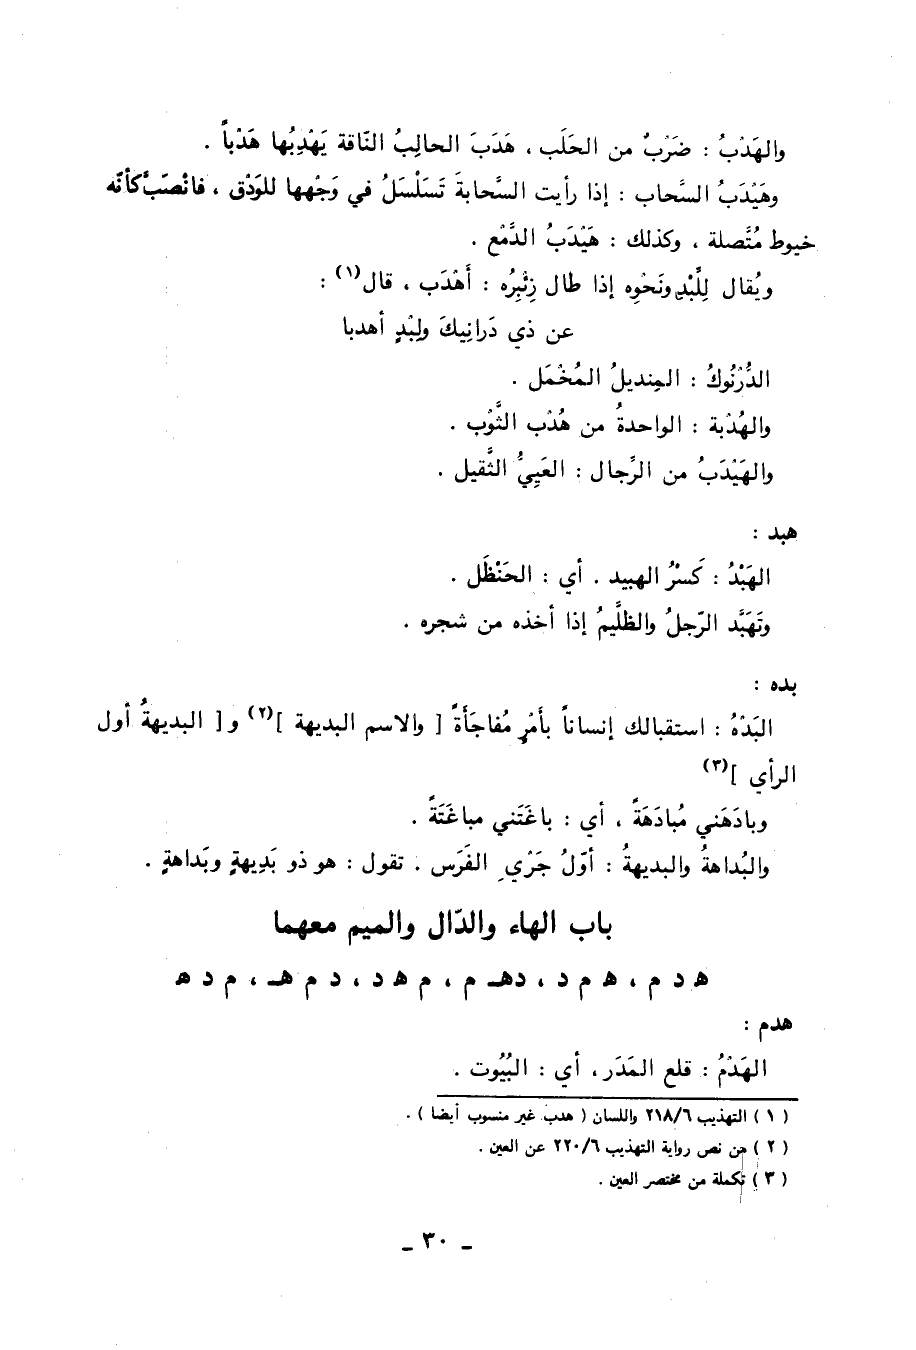 والهَدْبُ : ضَرْبٌ من الحَلَب ، هَدَبَ الحالِبُ النّاقة يَهْدِبُها هَدْباً .
وهَيْدَبُ السَّحاب : إذا رأيت السَّحابةَ تَسَلْسَلُ في وَجْهها للوَدْق ، فانْصَبَّ كأنّه
خيوط مُتَّصلة ، وكذلك : هَيْدَبُ الدَّمْع .
ويُقال لِلَّبْدِ ونَحْوِه إذا طال زِئْبِرُه : أَهْدَب ، قال(١) :
عن ذي دَرانِيكَ ولِبْدٍ أهدبا
الدُّرْنُوكُ : المِنديلُ المُخْمَل .
والهُدْبة : الواحدةُ من هُدْب الثَّوْب .
والهَيْدَبُ من الرِّجال : العَيِيُّ الثَّقيل .
هبد :
الهَبْدُ : كَسْرُ الهبيد . أي : الحَنْظَل .
وتَهَبَّد الرّجلُ والظَّليمُ إذا أخذه من شجره .
بده :
البَدْهُ : استقبالك إنساناً بأَمْرٍ مُفاجَأَةً [ والاسم البديهة ](٢) و[ البديهةُ أول
الرأي ](٣)
وبادَهَني مُبادَهَةً ، أي : باغَتَني مباغَتَةً .
والبُداهةُ والبديهةُ : أوّلُ جَرْيِ الفَرَس . تقول : هو ذو بَدِيهةٍ وبَداهةٍ .
باب الهاء والدّال والميم معهما
ه د م ، ه م د ، دهـ م ، م ه د ، د م هـ ، م د ه
هدم :
الهَدْمُ : قلع المَدَر ، أي : البُيُوت .
( ١ ) التهذيب ٢١٨/٦ واللسان ( هدب غير منسوب أيضا ) .
( ٢ ) من نص رواية التهذيب ٢٢٠/٦ عن العين .
( ٣ ) تكملة من مختصر العين .
ـ ٣٠ ـ